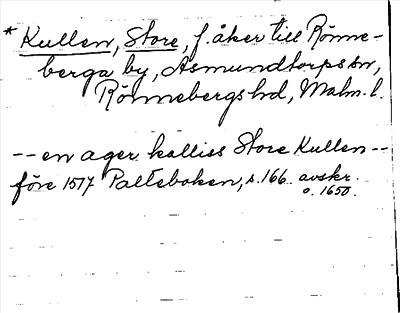 * Kullen, Store, f. åker till Rönne-
berga by, Asmundtorps sn,
Rönnebergs hd, Malm. l.
-- en ager kalliss Store Kullen --
före 1517 Palteboken, s. 166. avskr.
o. 1650.